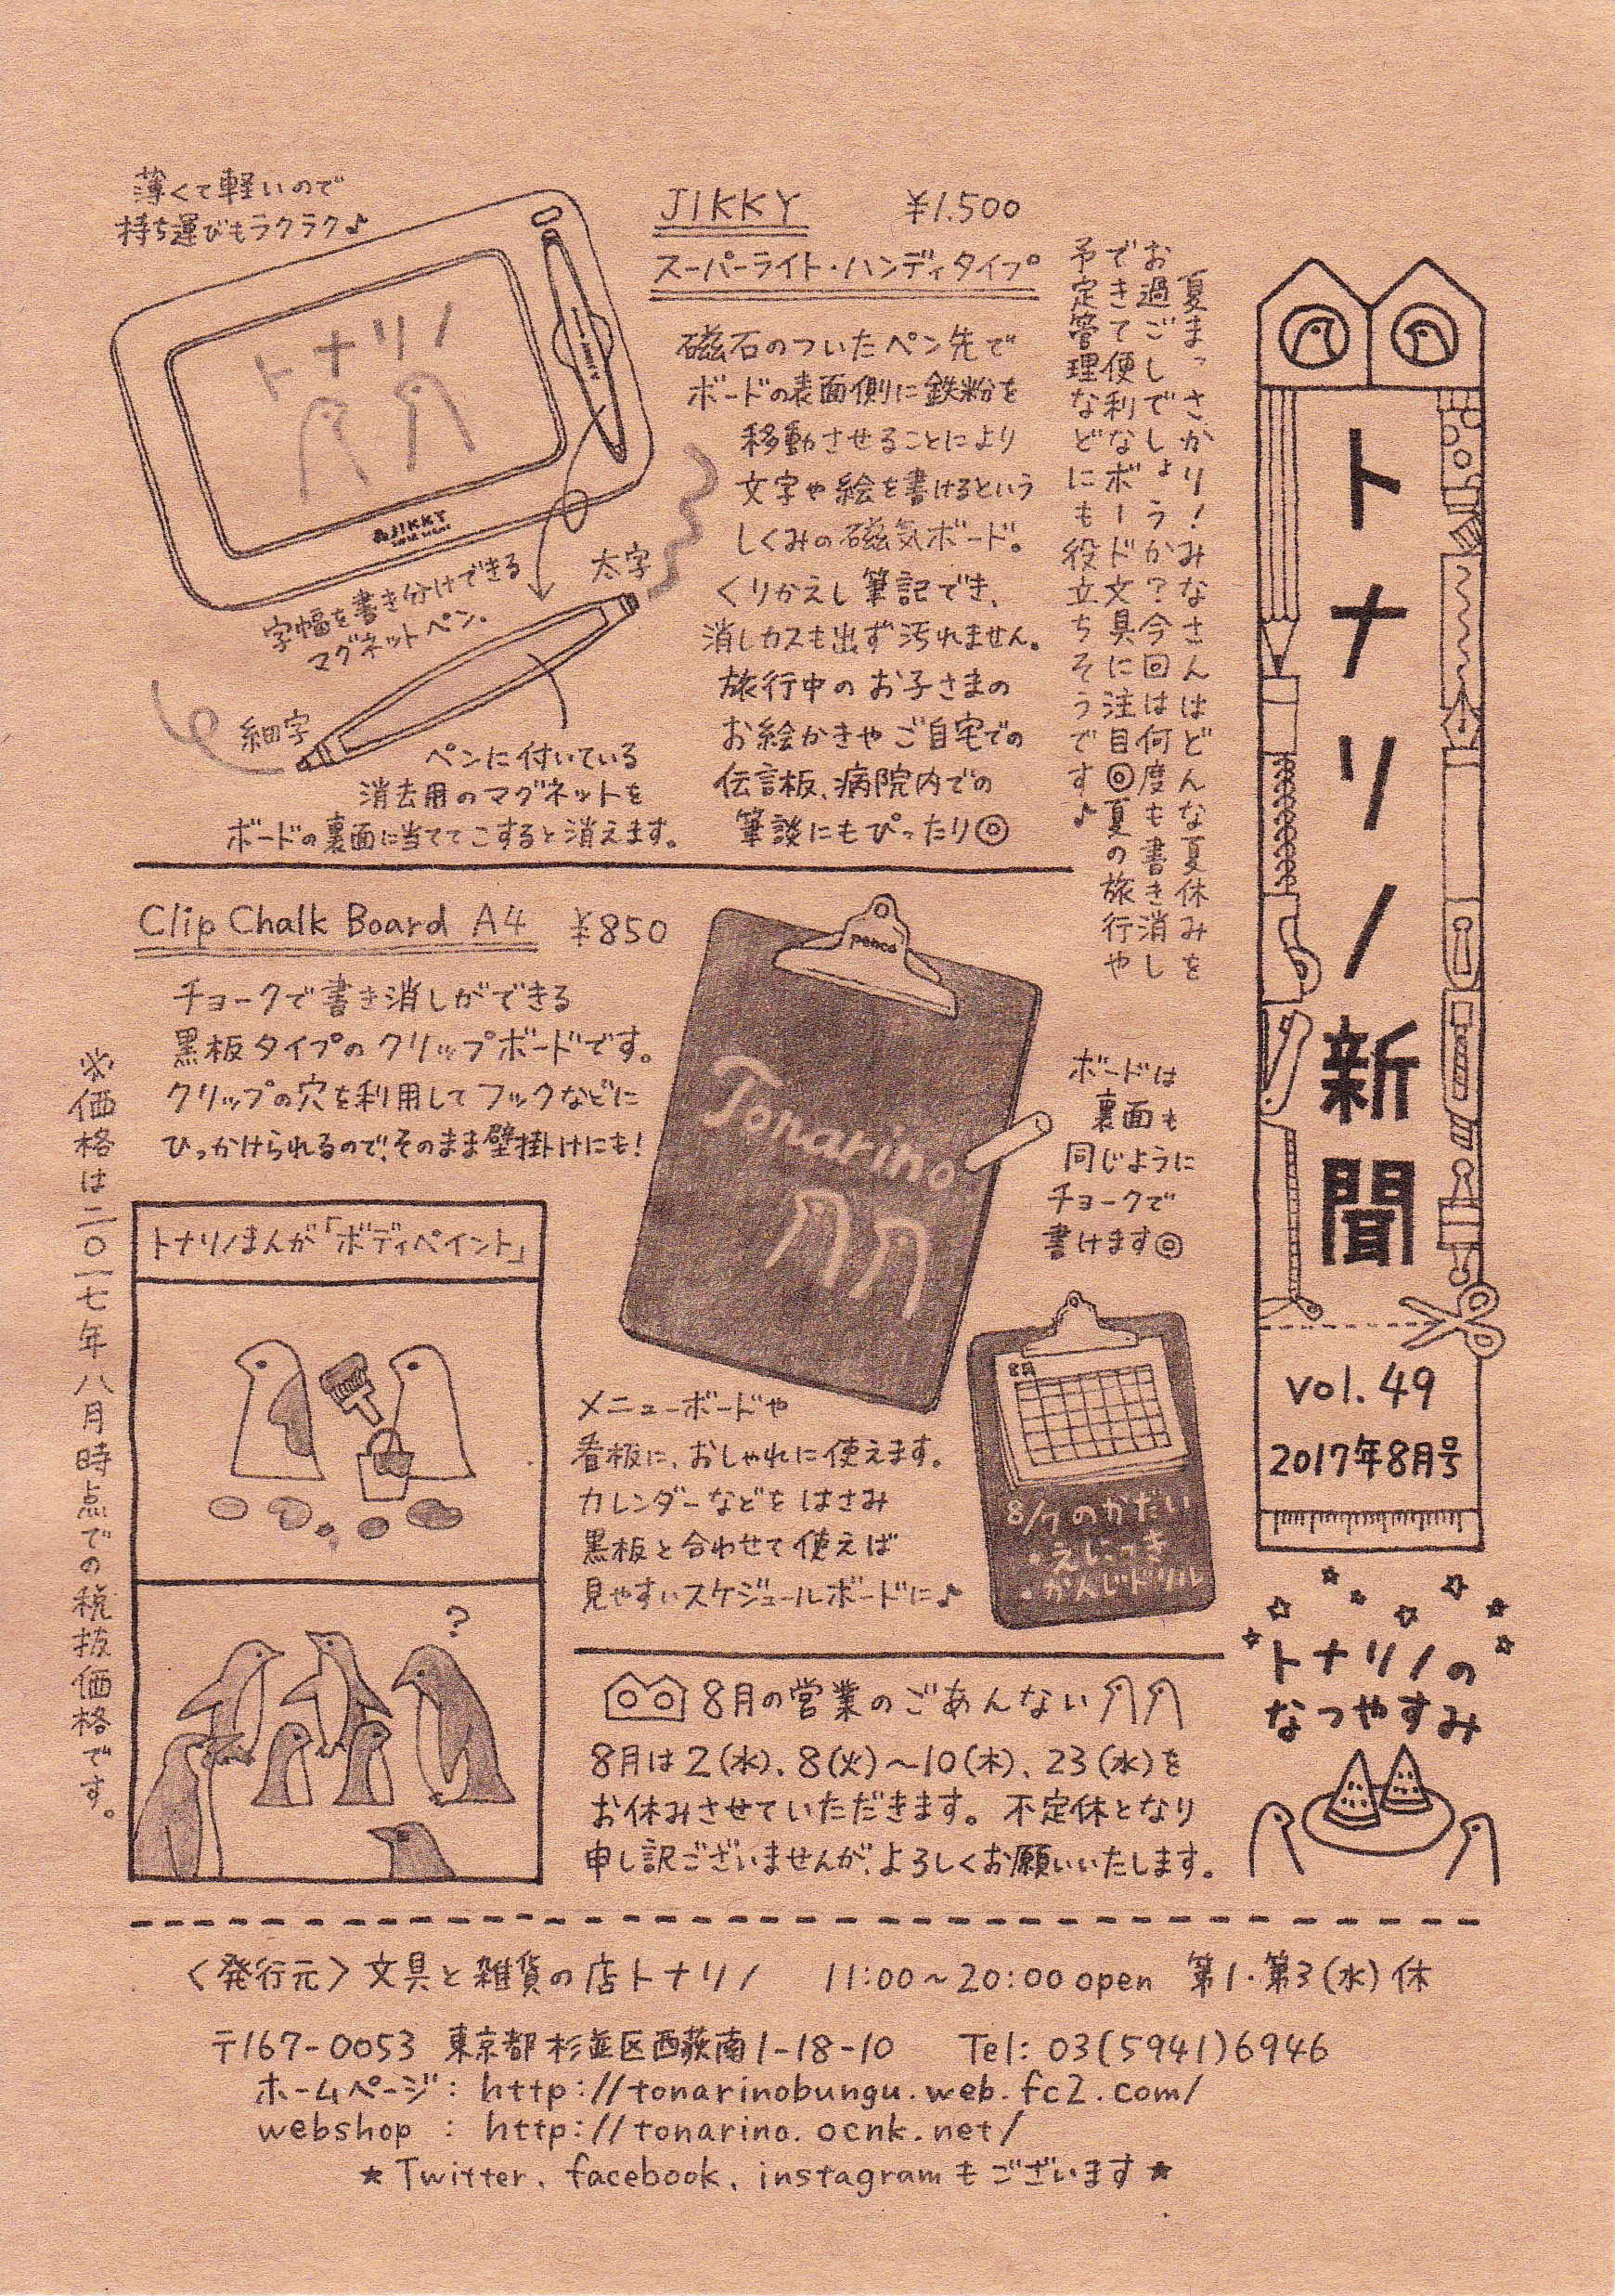 トナリノ新聞
vol. 49
2017年8月号
夏まっさかり!みなさんはどんな夏休みを
お過ごしでしょうか?今回は何度も書き消し
できて便利なボード文具に注目◎夏の旅行や
予定管理などにも役立ちそうです♪
JIKKY ¥1.500
スーパーライト・ハンディタイプ
磁石のついたペン先で
ボードの表面側に鉄粉を
移動させることにより
文字や絵を書けるという
しくみの磁気ボード。
くりかえし筆記でき、
消しカスも出ず汚れません。
旅行中のお子さまの
お絵かきやご自宅での
伝言板、病院内での
筆談にもぴったり◎
薄くて軽いので
持ち運びもラクラク♪
トナリノ
JIKKY
字幅を書き分けできる
マグネットペン。
太字
細字
ペンに付いている
消去用のマグネットを
ボードの裏面に当ててこすると消えます。
Clip Chalk Board A4 ¥850
チョークで書き消しができる
黒板タイプのクリップボードです。
クリップの穴を利用してフックなどに
ひっかけられるので、そのまま壁掛けにも!
penco
Tonarino
ボードは
裏面も
同じように
チョークで
書けます◎
メニューボードや
看板に、おしゃれに使えます。
カレンダーなどをはさみ
黒板と合わせて使えば
見やすいスケジュールボードに♪
8月
8/7のかだい
・えにっき
・かんじドリル
トナリノまんが「ボディペイント」
?
※価格は二〇一七年八月時点での税抜価格です。
8月の営業のごあんない
8月は2(水)、8(火)~10(木)、23(水)を
お休みさせていただきます。不定休となり
申し訳ございませんが、よろしくお願いいたします。
トナリノの
なつやすみ
<発行元>文具と雑貨の店トナリノ 11:00~20:00 open 第1・第3(水)休
〒167-0053 東京都杉並区西荻南1-18-10 Tel: 03(5941)6946
ホームページ: http://tonarinobungu.web.fc2.com/
webshop : http://tonarino.ocnk.net/
★Twitter、facebook、instagramもございます★